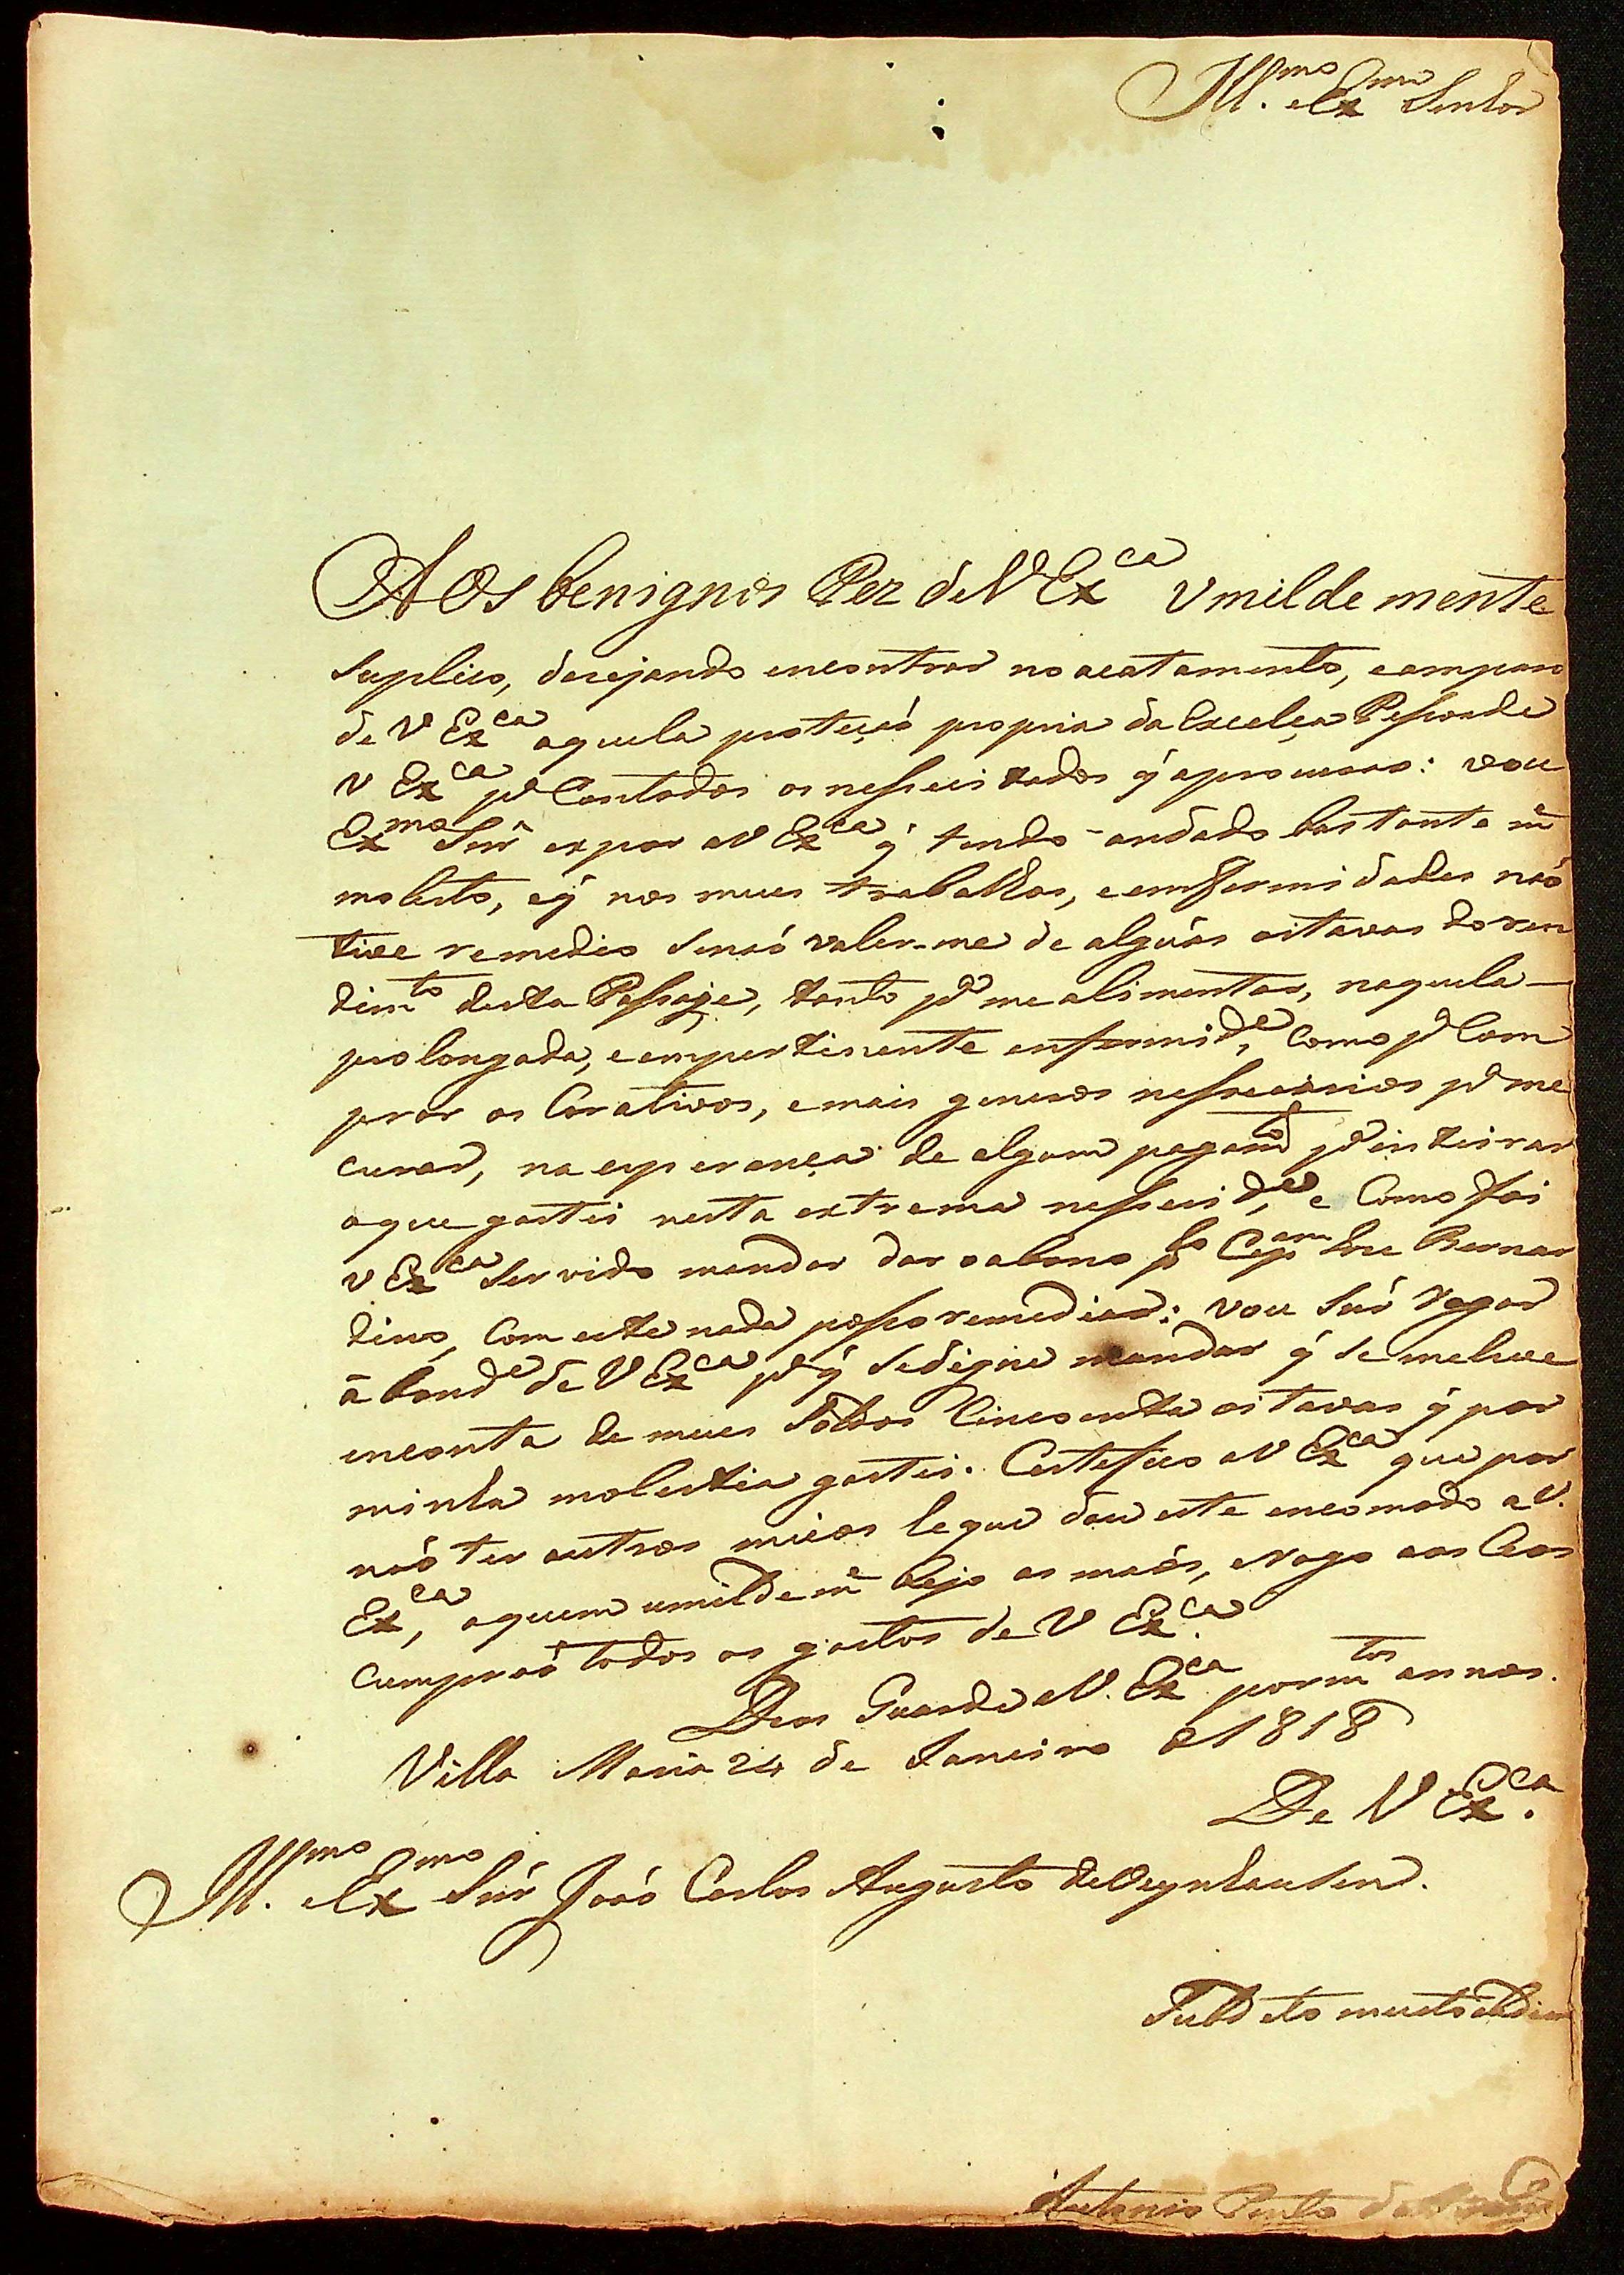 Ill.mo e Ex.mo Senhor
AOs benignos Pez de V Ex.ca Vmildemente
Suplico, dezejando encontrar no acatamento, eamparo
de V Ex.ca aquela proteçaó propria da Excelça Pessoa de
V Ex.ca p.a Contodos os nesseçitados q̃ aprocurao: vou
Ex.mo Snr̃ expor a V Ex.ca q̃ tendo andado bastante m.e
molesto, eq̃ nos meus trabalhos, eemfermidades naó
tive remedio Senaó valer-me de alguãs oitavas do ren
dim.to desta Passage, tanto p.a me alimentar, naquela
prolongada, eempertinente enfermid.e, Como p.a Com
prar os Corativos, emais generos nessecários p.a me
curar, na esperança de algum pagam.to p.a inteirar
oque gastei nesta extrema nessecid.e, e Como foi
V Ex.ca Servido mandar dar oabono p.lo Cap.am Joze Bernar
dino, Com este nada posso remediar: vou Snr̃ Rogar
á bond.e de V Ex.ca p.a q̃ Sedigne mandar q̃ Se meleve
emconta de meus Soldos Cincoenta oitavas q̃ por
minha molestia gastei. Certefico a V Ex.ca que por
naó ter outros meios heque dou este encomodo a V.
Ex.ca, aquem umildem.e bejo as maõs, eRogo aos Ceos
cumpraõ todos os gostos de V Ex.ca
Deos Guarde a V. Ex.ca porm.tos annos.
Villa Maria 24 de Janeiro de 1818
De V Ex.ca
Ill.mo e Ex.mo Snr̃ Joaó Carlos Augusto de Oeynhausen.
Subdito muito obdien
Antonio Pinto de